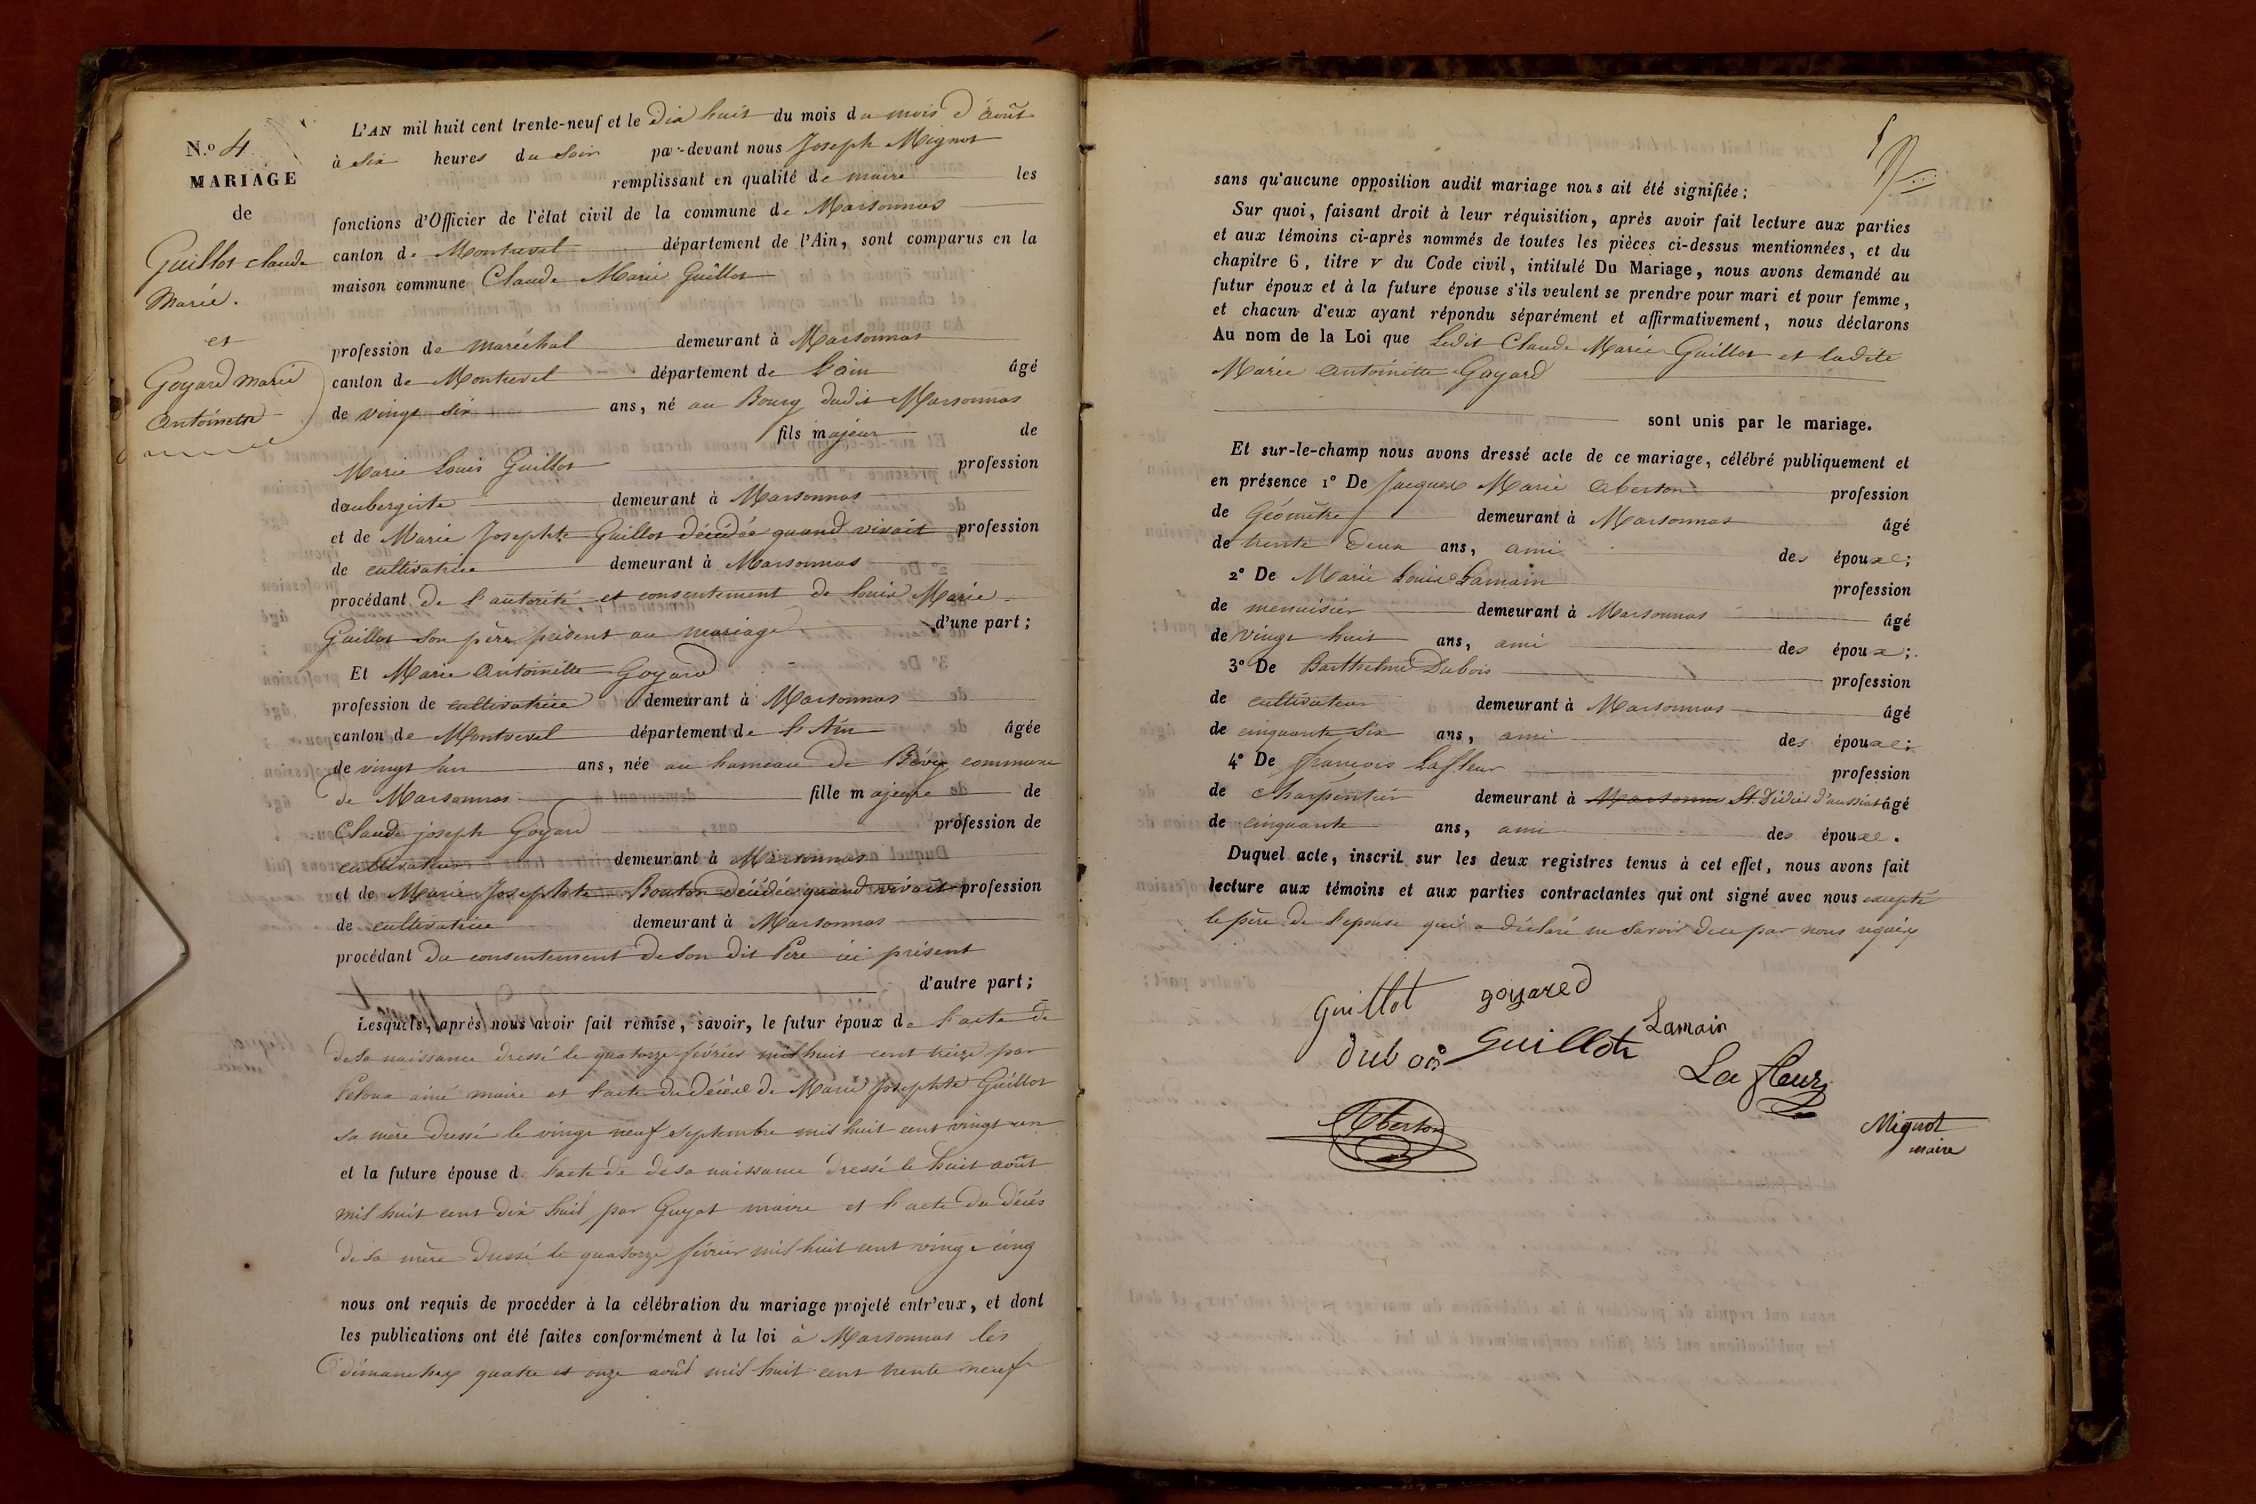 N.º 4
MARIAGE
de
Guillot Claude
Marie.
et
Goyard Marie
Antoinette
L'AN mil huit cent trente-neuf et le Dix huit du mois du mois d'Août
à Six heures du Soir par-devant nous Joseph Mignot
remplissant en qualité de maire les
fonctions d'Officier de l'état civil de la commune de Marsonnas
canton de Montrevel département de l'Ain, sont comparus en la
maison commune Claude Marie Guillot
profession de maréchal demeurant à Marsonnas
canton de Montrevel département de l'ain âgé
de vingt six ans, né au Bourg dudit Marsonnas
fils majeur de
Marie Louis Guillot profession
daubergiste demeurant à Marsonnas
et de Marie Josephte Guillot décédée quand vivait profession
de cultivatrice demeurant à Marsonnas
procédant de l'autorité et consentement de Louis Marie
Guillot son père présent au mariage d'une part;
Et Marie Antoinette Goyard
profession de cultivatrice demeurant à Marsonnas
canton de Montrevel département de l'Ain âgée
de vingt un ans, née au hameau de Bévey commune
de Marsonnas fille majeure de
Claude joseph Goyard profession de
cultivateur demeurant à Marsonnas
et de Marie Josephte Bouton Décédée quand vivait profession
de cultivatrice demeurant à Marsonnas
procédant du consentement de son dit Père ici présent
d'autre part;
Lesquels, après nous avoir fait remise, savoir, le futur époux de l'acte de
de sa naissance dressé le quatorze février mil huit cent treize par
ainé maire et l'acte du décès de Marie Josephte Guillot
sa mère dressé le vingt neuf septembre mil huit cent vingt un
et la future épouse d l'acte de de sa naissance dressé le huit août
mil huit cent dix huit par Guyot maire et l'acte du décès
de sa mère dressé le quatorze février mil huit cent vingt cinq
nous ont requis de procéder à la célébration du mariage projeté entr'eux, et dont
les publications ont été faites conformément à la loi à Marsonnas les
dimanches quatre et onze août mil huit cent trente neuf
sans qu'aucune opposition audit mariage nous ait été signifiée;
Sur quoi, faisant droit à leur réquisition, après avoir fait lecture aux parties
et aux témoins ci-après nommés de toutes les pièces ci-dessus mentionnées, et du
chapitre 6, titre v du Code civil, intitulé Du Mariage, nous avons demandé au
futur époux et à la future épouse s'ils veulent se prendre pour mari et pour femme,
et chacun d'eux ayant répondu séparément et affirmativement, nous déclarons
Au nom de la Loi que Ledit Claude Marie Guillot et ladite
Marie Antoinette Goyard
sont unis par le mariage.
Et sur-le-champ nous avons dressé acte de ce mariage, célébré publiquement et
en présence 1º De Jacques Marie Aberton profession
de Géomètre demeurant à Marsonnas âgé
de trente deux ans, ami des époux;
2º De Marie Louis Lamain profession
de menuisier demeurant à Marsonnas âgé
de vingt huit ans, ami des époux;
3º De Barthelmé Dubois profession
de cultivateur demeurant à Marsonnas âgé
de cinquante six ans, ami des époux;
4º De François Lafleur profession
de Charpentier demeurant à Marsonnas St. Didier d'aussiat âgé
de cinquante ans, ami des époux.
Duquel acte, inscrit sur les deux registres tenus à cet effet, nous avons fait
lecture aux témoins et aux parties contractantes qui ont signé avec nous excepté
le père de l'epouse qui a déclaré ne savoir de ce par nous requis
Guillot goyared
Lamain
dubois Guillot
La fleur
Aberton
Mignot
maire